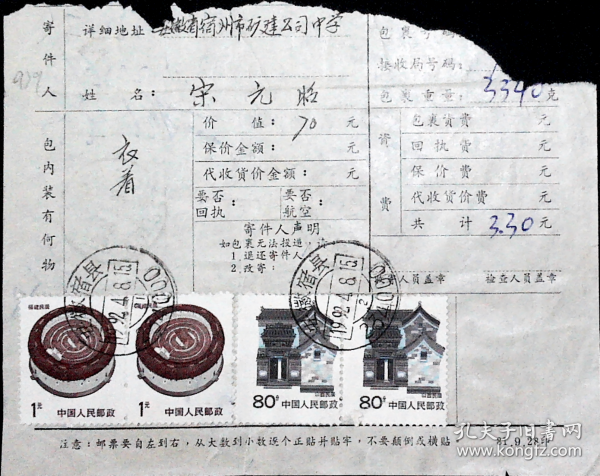 寄件人
详细地址：安徽省宿州市矿建公司中学
包裹号码
接收局号码：
姓 名：宋元昭
包裹重量：3340克
包内装有何物
衣着
价 值：70元
保价金额：元
代收货价金额：元
要否回执：
要否航空：
寄件人声明
如包裹无法投递，请
1.退还寄件人
2.改寄：
费 费
包裹资费 元
回执费 元
保价费 元
代收货价费 元
共计 3.30元
人员盖章
检查人员盖章
安徽宿县
1992.4.8.15
安徽宿县
1992.4.8.15
福建民居
1元 中国人民邮政
1元 中国人民邮政
山西民居
80分 中国人民邮政
山西民居
80分 中国人民邮政
注意：邮票要自左到右，从大数到小数逐个正贴并贴牢，不要颠倒或横贴
81.9.28印
孔夫子旧书网
www.kongfz.com